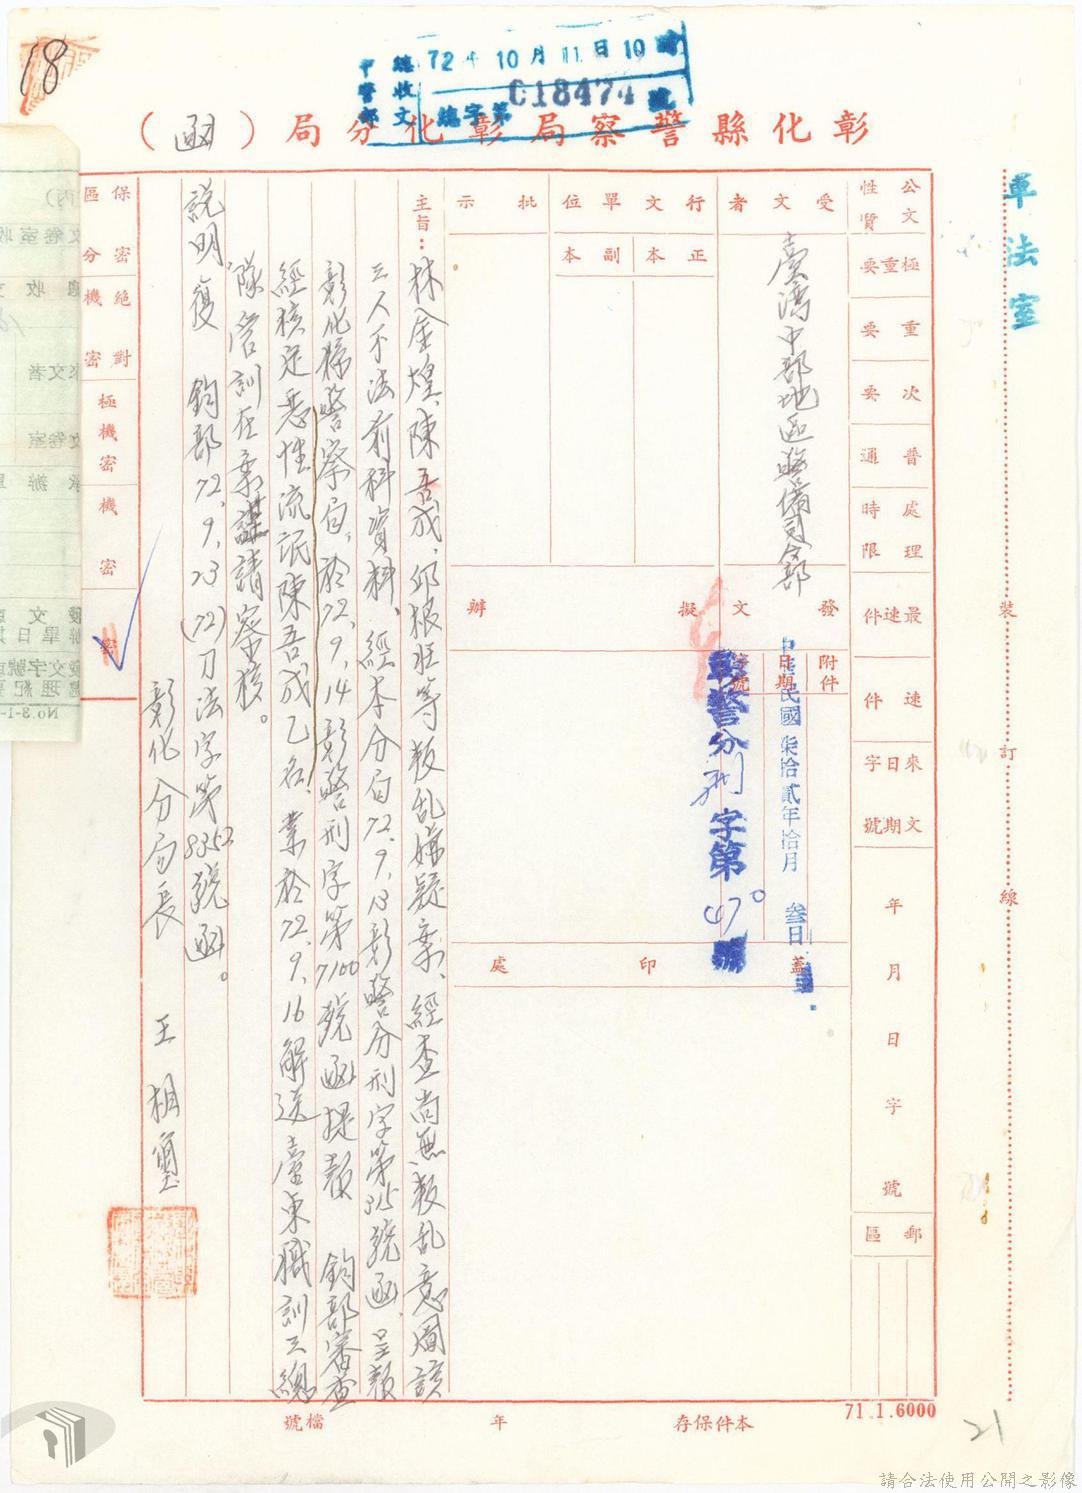 18
中警部
總收文
72年10月11日10時
總字第018474號
彰化縣警察局彰化分局（函）
軍法室
公文性質
極重要
重要
次要
普通
處理時限
最速件
速件
來文日期字號
年月日字號
郵區
受文者
行文單位
批示
正本
副本
臺灣中部地區警備司令部
發文
擬辦
附件
日期
字號
中華民國柒拾貳年拾月叁日
彰警分刑字第470號
蓋印處
主旨：林金煌、陳吾成、邱根旺等叛乱嫌疑案、經查尚無叛乱意圖該
三人不法前科資料、經本分局72.9.13彰警分刑字第315號函、呈報
彰化縣警察局、於72.9.14彰警刑字第7100號函提報 鈞部審查
經核定惡性流氓陳吾成乙名、業於72.9.16解送臺東職訓三總
隊管訓在案謹請察核。
說明復 鈞部72.9.23(72)刀法字第8352號函。
彰化分局長 王相
保密區分
絕對機密
極機密
機密
密
裝訂線
檔號
年
本件保存
71.1.6000
21
文卷室收
總收文
來文者
文卷室
承辦單
發文
辦畢日期
發文字號
處理紀要
No.3-1-
請合法使用公開之影像